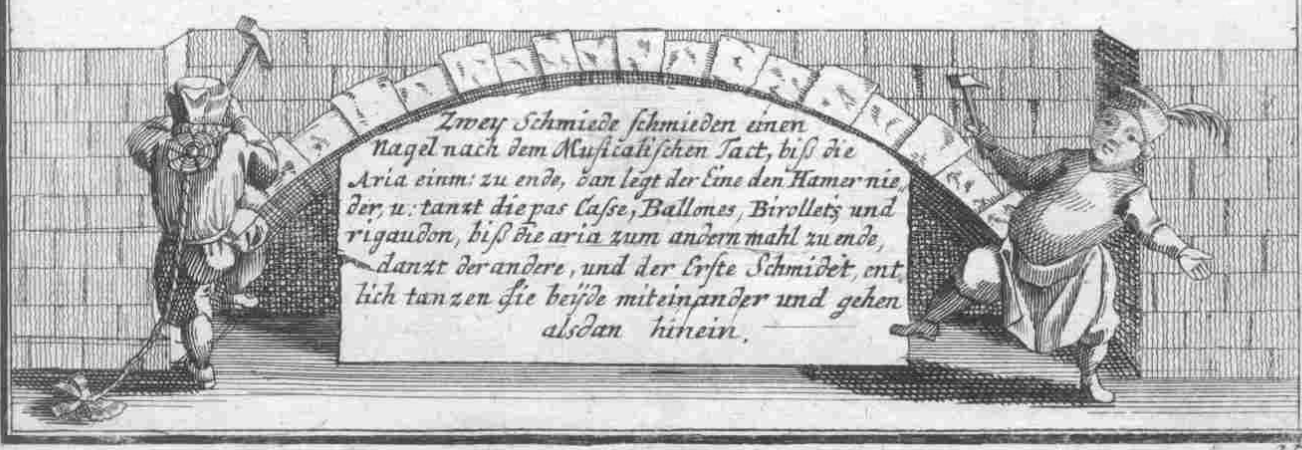 Zwey Schmiede schmieden einen
Nagel nach dem Musicalischen Tact, biß die
Aria einm: zu ende, dan legt der Eine den Hamer nie„
der, u: tanzt die pas Casse, Ballones, Birollets, und
rigaudon, biß die aria zum andern mahl zu ende,
danzt der andere, und der Erste Schmidet, ent„
lich tanzen sie beÿde miteinander und gehen
alsdan hinein.